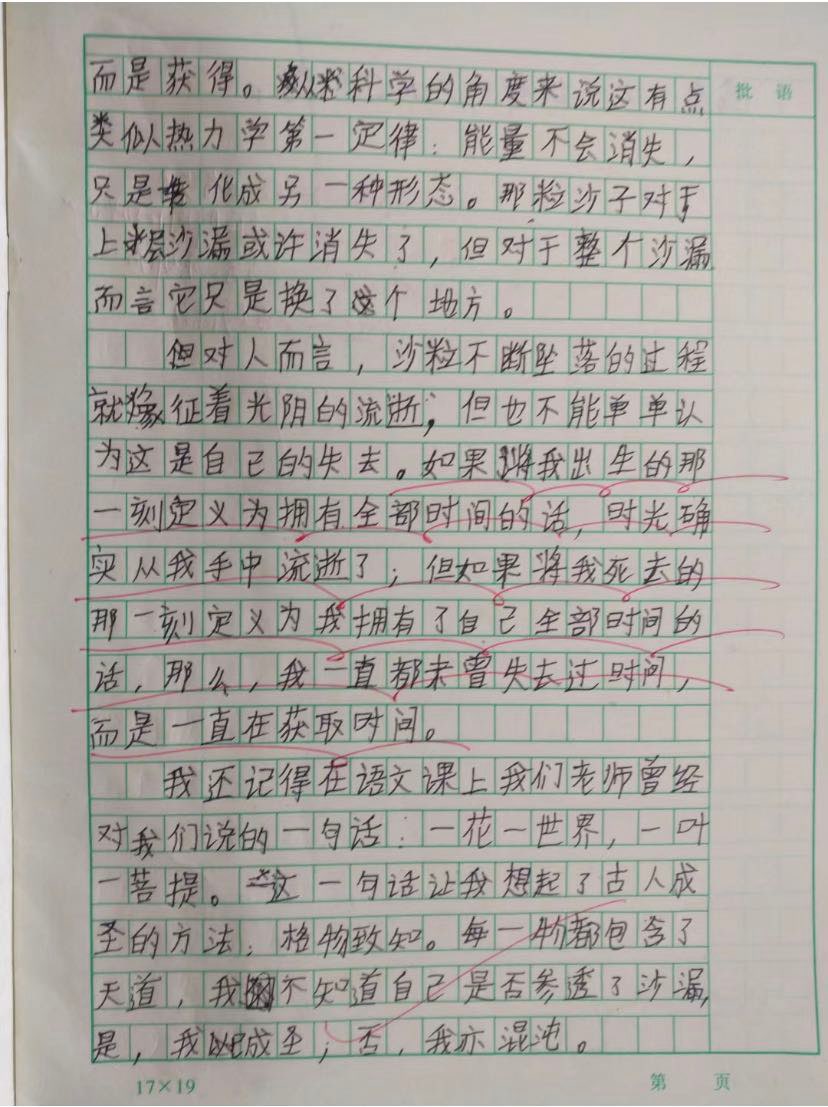 批语
而是获得。从科学的角度来说这有点
类似热力学第一定律：能量不会消失，
只是转化成另一种形态。那粒沙子对于
上层沙漏或许消失了，但对于整个沙漏
而言它只是换了这个地方。
但对人而言，沙粒不断坠落的过程
就像征着光阴的流逝，但也不能单单认
为这是自己的失去。如果将我出生的那
一刻定义为拥有全部时间的话，时光确
实从我手中流逝了；但如果将我死去的
那一刻定义为我拥有了自己全部时间的
话，那么，我一直都未曾失去过时间，
而是一直在获取时间。
我还记得在语文课上我们老师曾经
对我们说的一句话：一花一世界，一叶
一菩提。这一句话让我想起了古人成
圣的方法：格物致知。每一物都包含了
天道，我不知道自己是否参透了沙漏，
是，我已成圣；否，我亦混沌。
17×19 第 页